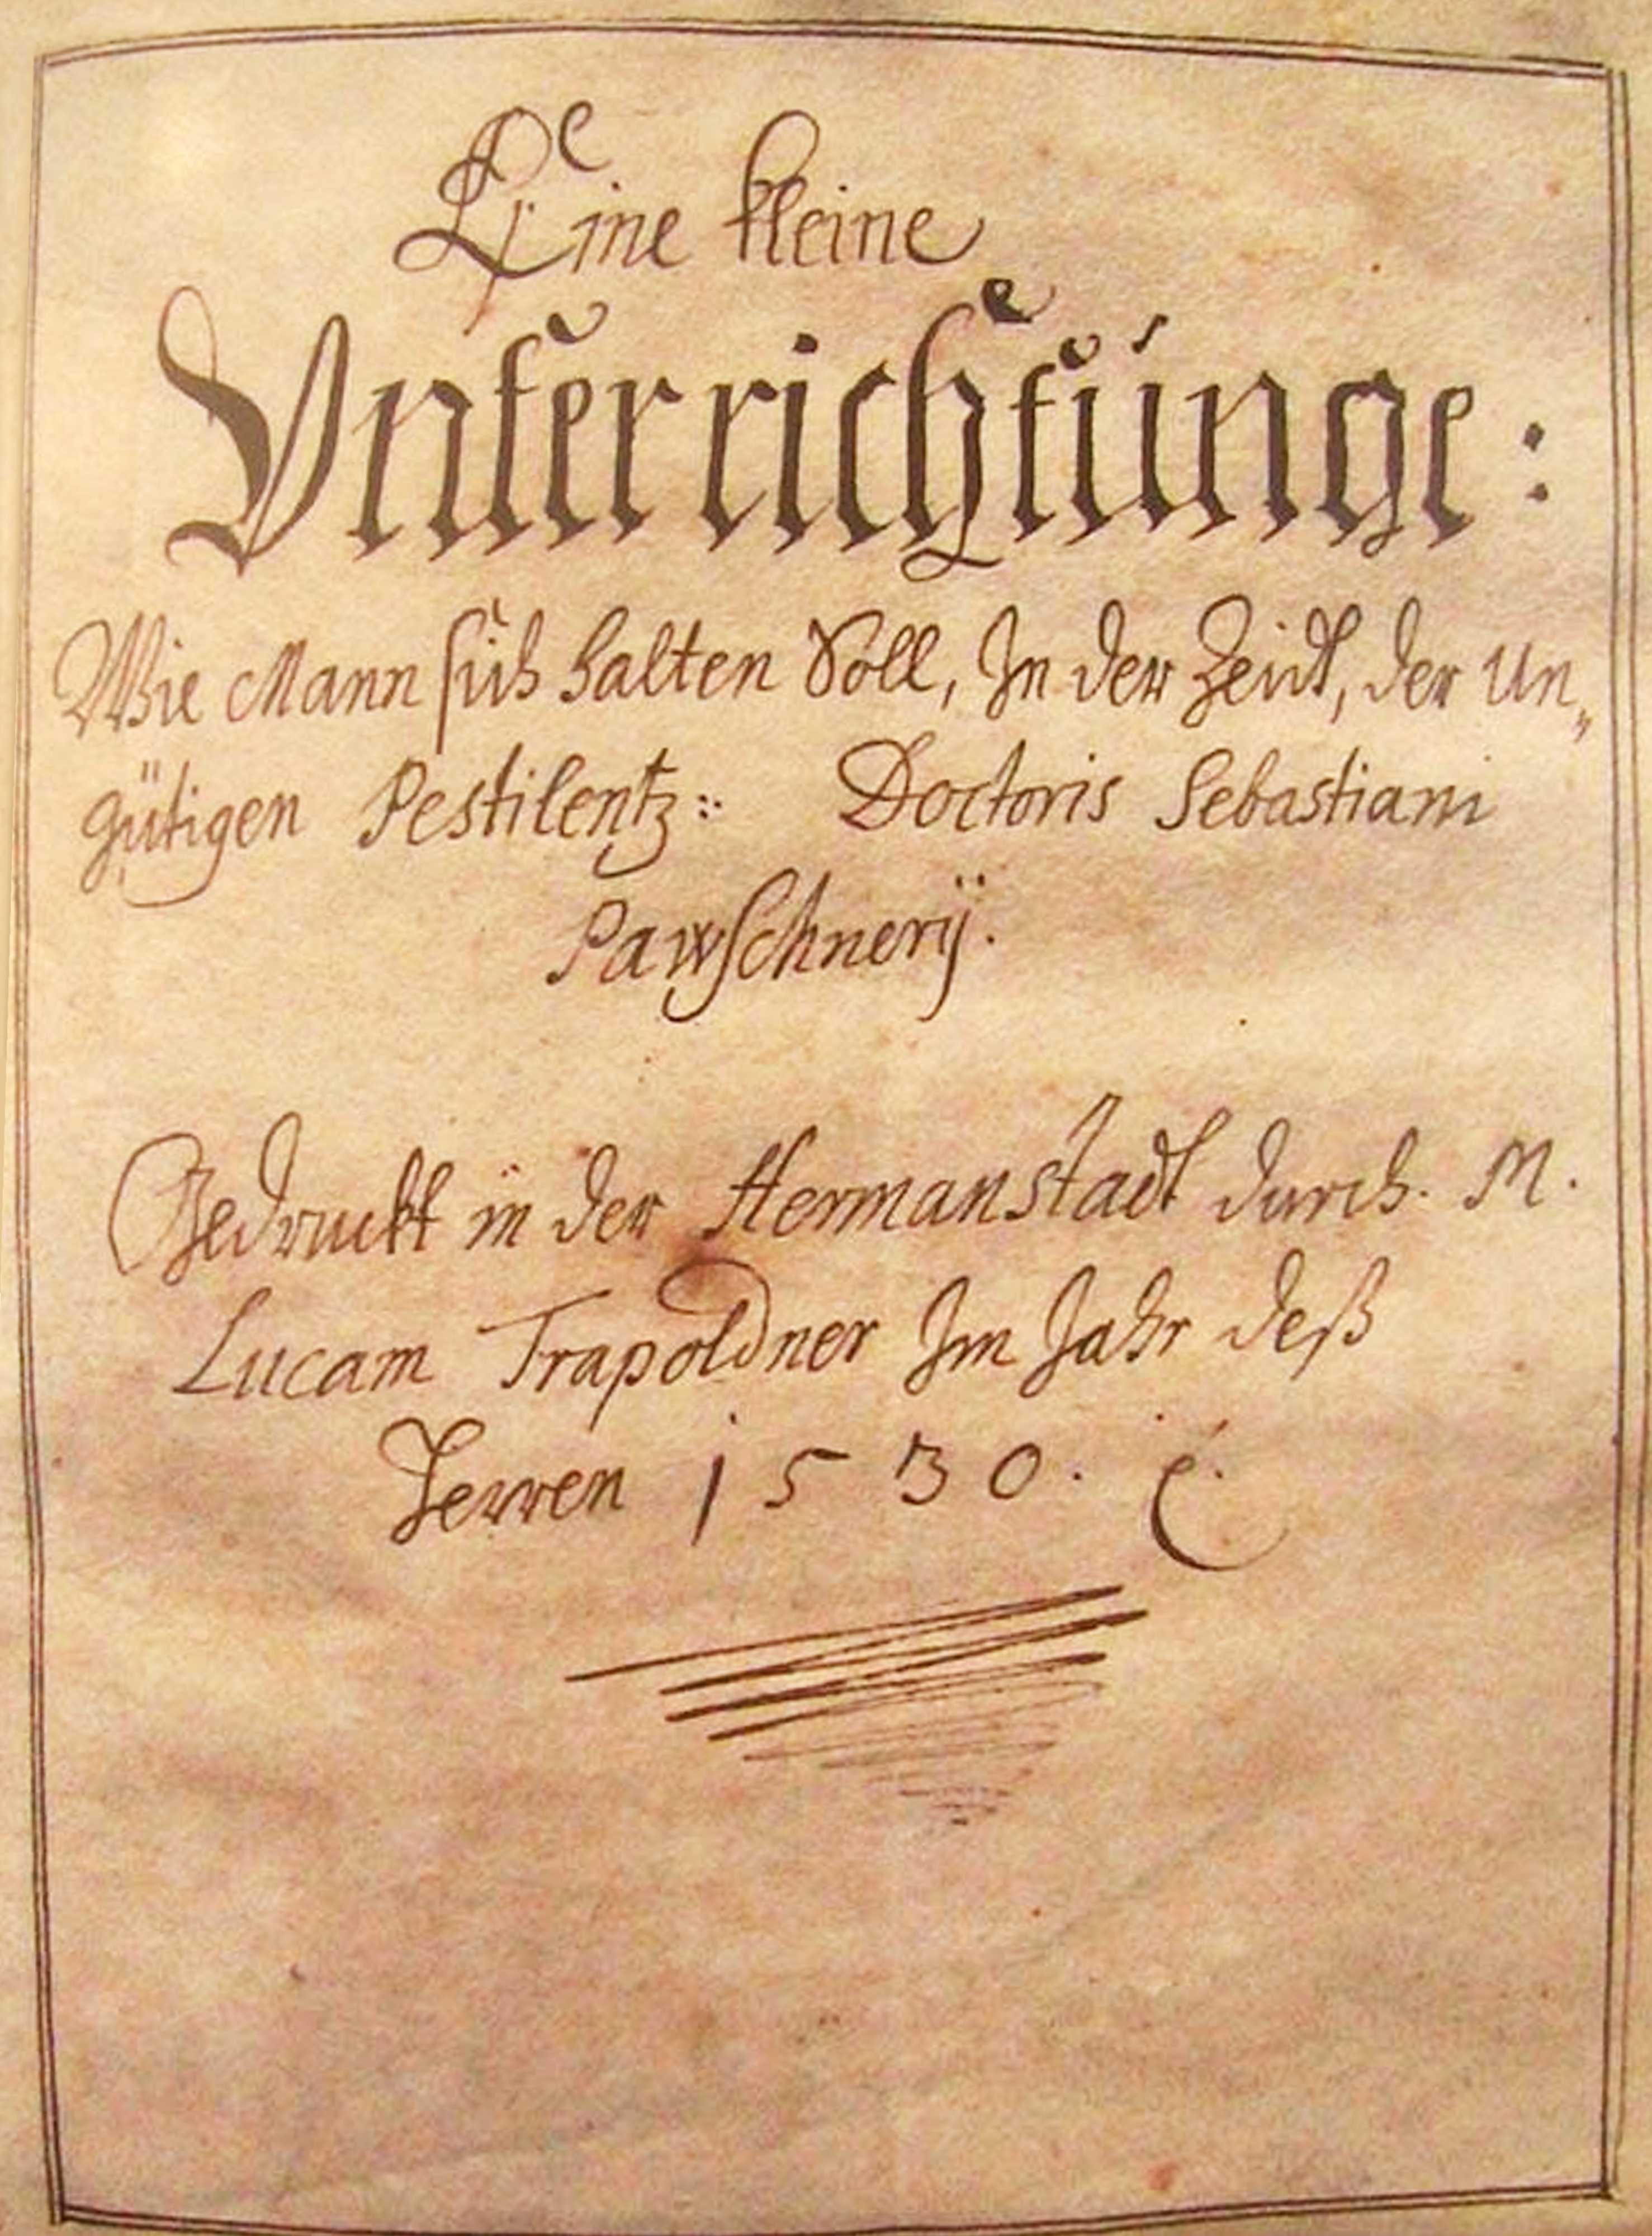 Eine kleine
Vnterrichtúnge:
Wie Mann sich halten Soll, In der Zeidt, der Un„
gütigen Pestilentz:: Doctoris Sebastiani
Pawschnerÿ.
Gedruckt in der Hermanstadt durch. M.
Lucam Trapoldner Im Jahr deß
Herren 1530.